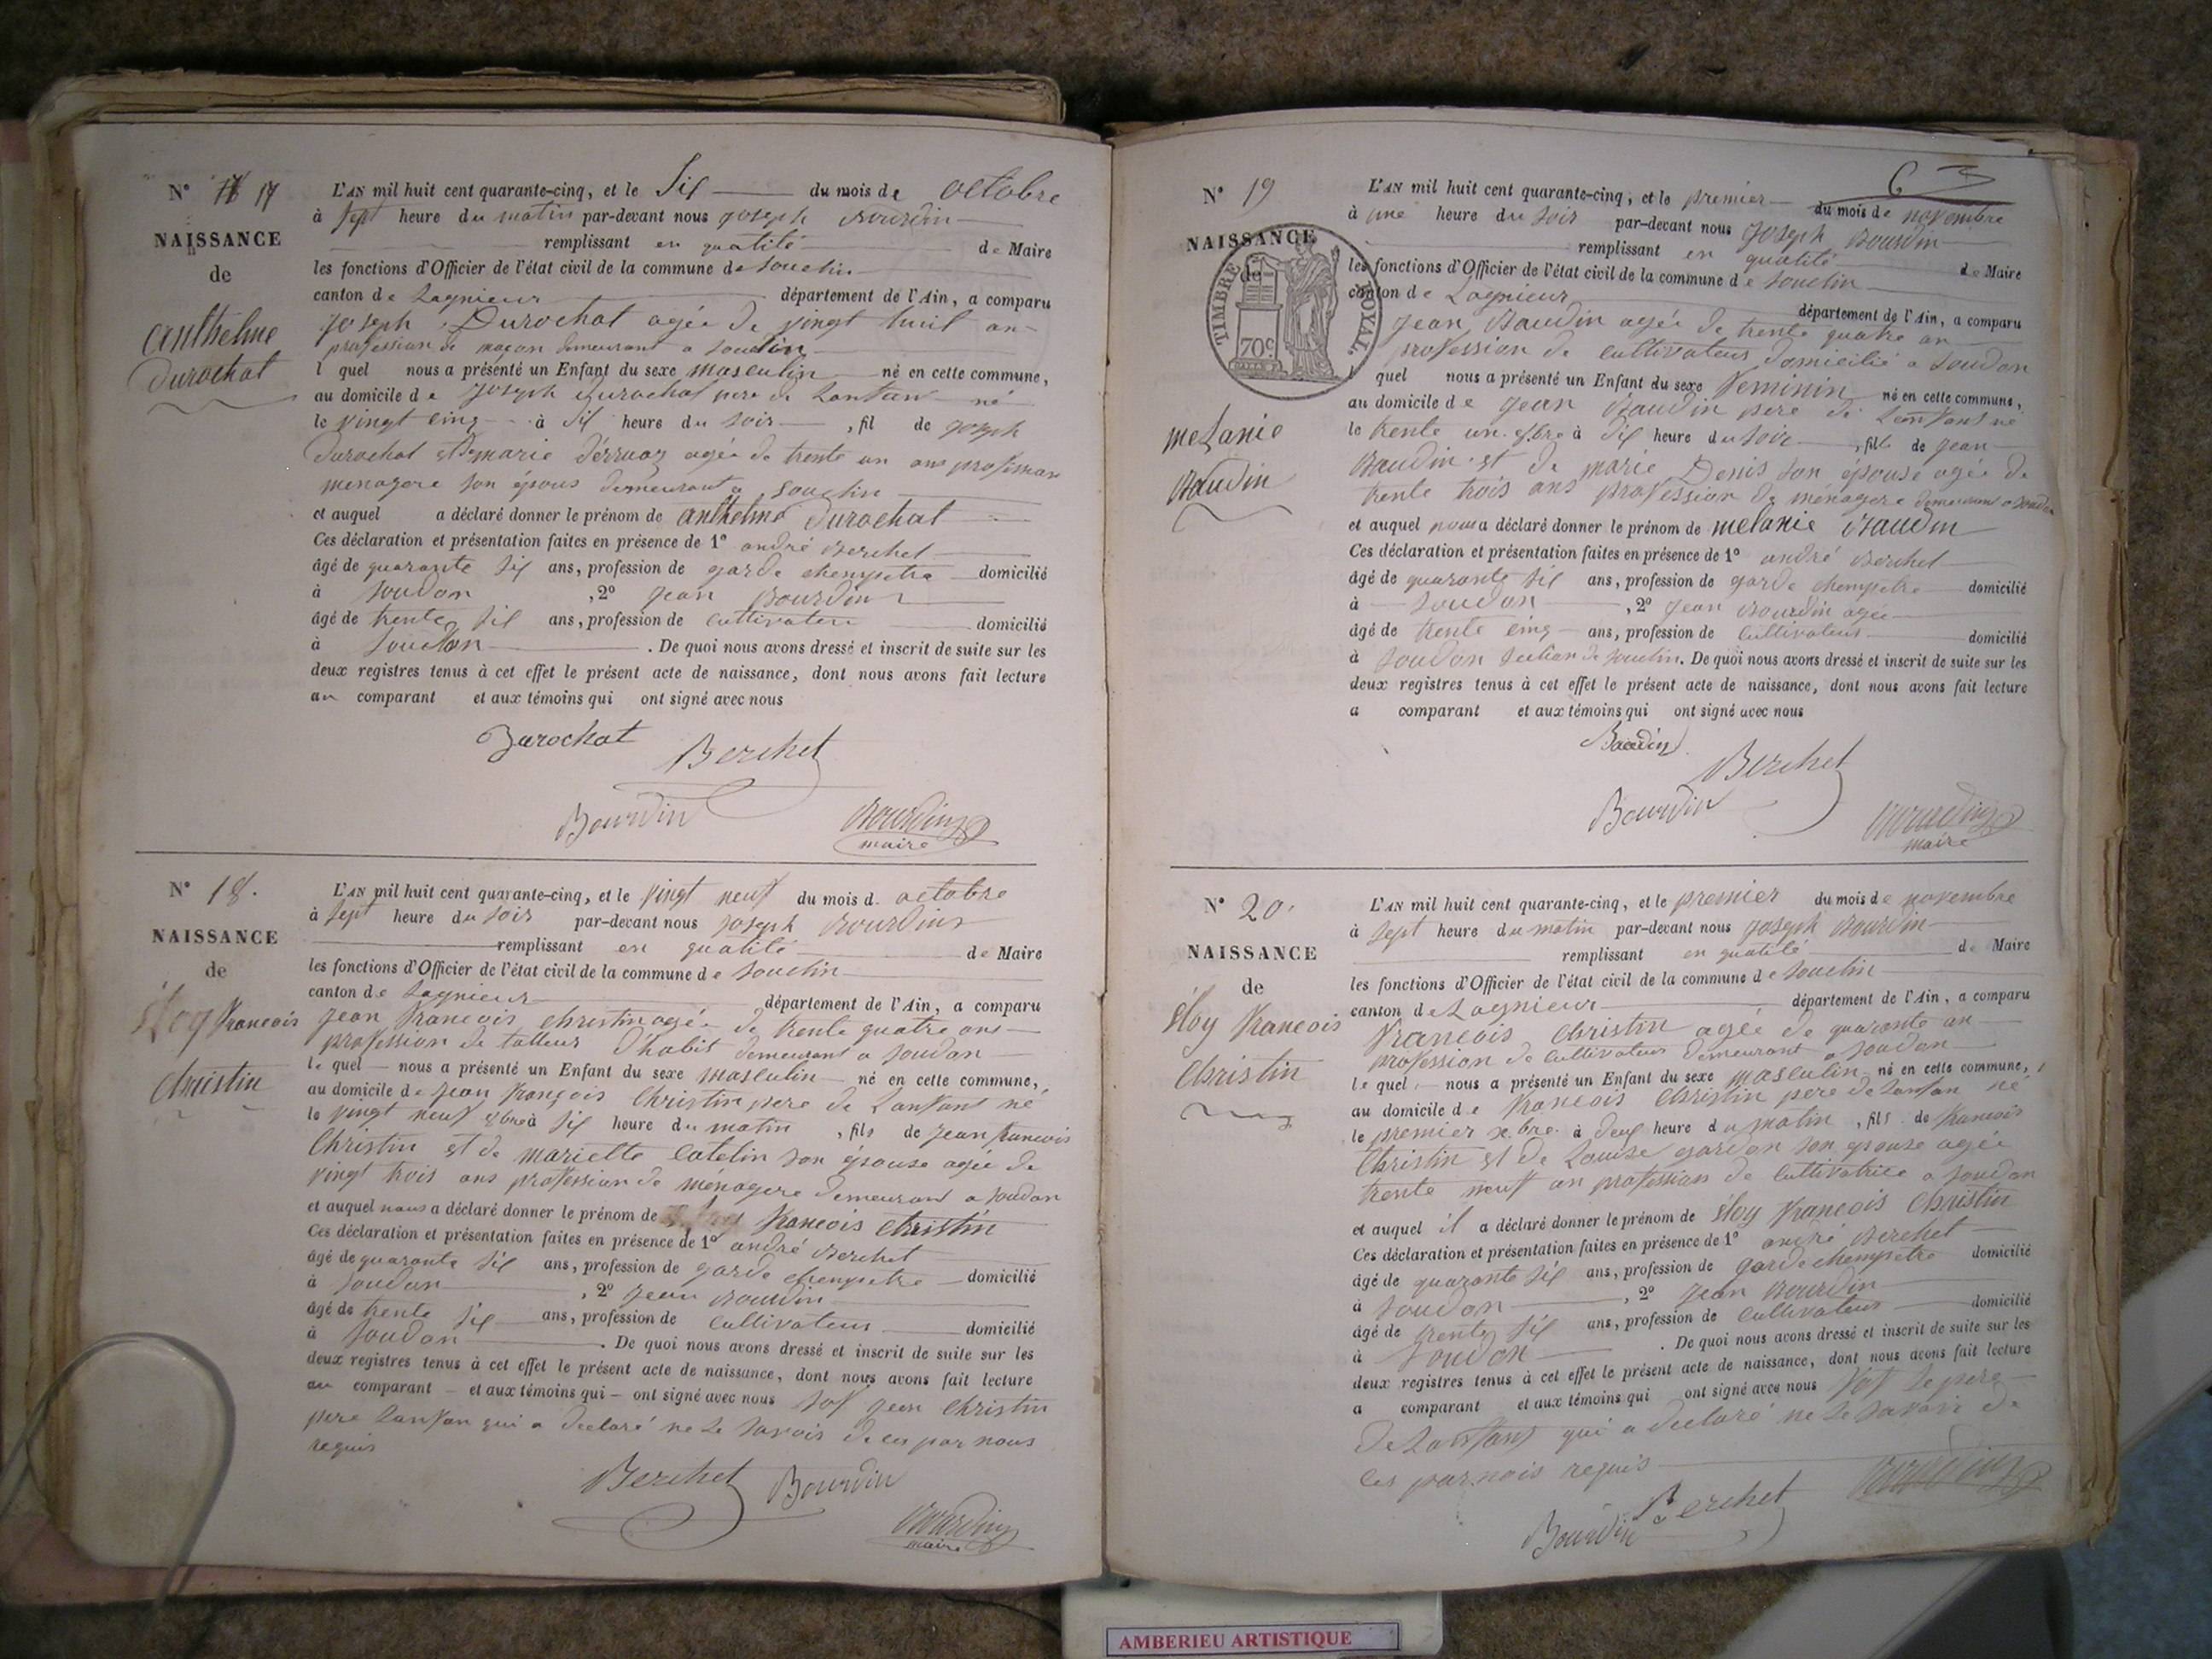 N° 17
NAISSANCE
de
anthelme
Durochat
L'AN mil huit cent quarante-cinq, et le Six du mois de octobre
à Sept heure du matin par-devant nous joseph Bourdin
remplissant en qualité de Maire
les fonctions d'Officier de l'état civil de la commune de Souclin
canton de Lagnieux département de l'Ain, a comparu
joseph Durochat agée de vingt huit an
profession de maçon demeurant a Souclin
l quel nous a présenté un Enfant du sexe masculin né en cette commune,
au domicile de joseph Durochat pere de Lanfan né
le vingt cinq à Six heure du Soir, fil de joseph
Durochat et marie agée de trente un ans profession
menagere son épous demeurant a Souclin
et auquel a déclaré donner le prénom de anthelme Durochat
Ces déclaration et présentation faites en présence de 1° andré Berchet
âgé de quarante Six ans, profession de garde chempetre domicilié
à Soudon, 2° jean Bourdin
âgé de trente Six ans, profession de cultivateur domicilié
à Soudon. De quoi nous avons dressé et inscrit de suite sur les
deux registres tenus à cet effet le présent acte de naissance, dont nous avons fait lecture
au comparant et aux témoins qui ont signé avec nous
Durochat
Berchet
Bourdin
Bourdin
maire
N° 18.
NAISSANCE
de
Eloy francois
Christin
L'AN mil huit cent quarante-cinq, et le vingt neuf du mois d. octobre
à Sept heure du Soir par-devant nous joseph Bourdin
remplissant en qualité de Maire
les fonctions d'Officier de l'état civil de la commune de Souclin
canton de Lagnieux département de l'Ain, a comparu
jean francois christin agée de trente quatre ans
profession de talleur d'habit demeurant a Soudon
le quel nous a présenté un Enfant du sexe masculin né en cette commune,
au domicile de jean françois Christin pere de Lanfant né
le vingt neuf 8bre à Six heure du matin, fils de jean francois
Christin et de mariette Catelin son épouse agée de
vingt trois ans profession de ménagere demeurant a Soudon
et auquel nous a déclaré donner le prénom de francois christin
Ces déclaration et présentation faites en présence de 1° andré Berchet
âgé de quarante Six ans, profession de garde chempetre domicilié
à Soudon, 2° jean Bourdin
âgé de trente Six ans, profession de cultivateur domicilié
à Soudon. De quoi nous avons dressé et inscrit de suite sur les
deux registres tenus à cet effet le présent acte de naissance, dont nous avons fait lecture
au comparant et aux témoins qui ont signé avec nous Sof jean christin
pere Lanfan qui a declaré ne le Savoir de ces par nous
requis
Berchet Bourdin
Bourdin
maire
6
N° 19
NAISSANCE
de
TIMBRE ROYAL.
70c
melanie
Baudin
L'AN mil huit cent quarante-cinq, et le premier du mois de novembre
à une heure du Soir par-devant nous joseph Bourdin
remplissant en qualité de Maire
les fonctions d'Officier de l'état civil de la commune de Souclin
canton de Lagnieux département de l'Ain, a comparu
jean Baudin agée de trente quatre an
profession de cultivateur domicilié a Soudon
l quel nous a présenté un Enfant du sexe feminin né en cette commune,
au domicile de jean Baudin pere de Lenfant né
le trente un 8bre à dix heure du Soir, fill de jean
Baudin et de marie Denis son épouse agée de
trente trois ans profession de ménagere demeurant a Soudon
et auquel nous a déclaré donner le prénom de melanie Baudin
Ces déclaration et présentation faites en présence de 1° andré Berchet
âgé de quarante Six ans, profession de garde chempetre domicilié
à Soudon, 2° jean Bourdin agée
âgé de trente cinq ans, profession de cultivateur domicilié
à Soudon Section de Souclin. De quoi nous avons dressé et inscrit de suite sur les
deux registres tenus à cet effet le présent acte de naissance, dont nous avons fait lecture
a comparant et aux témoins qui ont signé avec nous
Baudin
Berchet
Bourdin
Bourdin
maire
N° 20.
NAISSANCE
de
éloy francois
Christin
L'AN mil huit cent quarante-cinq, et le premier du mois de novembre
à Sept heure du matin par-devant nous joseph Bourdin
remplissant en qualité de Maire
les fonctions d'Officier de l'état civil de la commune de Souclin
canton de Lagnieux département de l'Ain, a comparu
francois christin agée de quarante an
profession de cultivateur demeurant a Soudon
le quel nous a présenté un Enfant du sexe masculin né en cette commune,
au domicile de francois christin pere de Lanfan né
le premier à deux heure du matin, fils de francois
Christin et de Louise gardon son epouse agée
trente neuf an profession de cultivatrice a Soudon
et auquel il a déclaré donner le prénom de éloy francois christin
Ces déclaration et présentation faites en présence de 1° andré Berchet
âgé de quarante Six ans, profession de garde chempetre domicilié
à Soudon, 2° jean Bourdin
âgé de trente Six ans, profession de cultivateur domicilié
à Soudon. De quoi nous avons dressé et inscrit de suite sur les
deux registres tenus à cet effet le présent acte de naissance, dont nous avons fait lecture
a comparant et aux témoins qui ont signé avec nous Sof le pere
de Lanfant qui a declaré ne le Savoir de
ces par nois requis
Bourdin
Berchet
Bourdin
AMBERIEU ARTISTIQUE